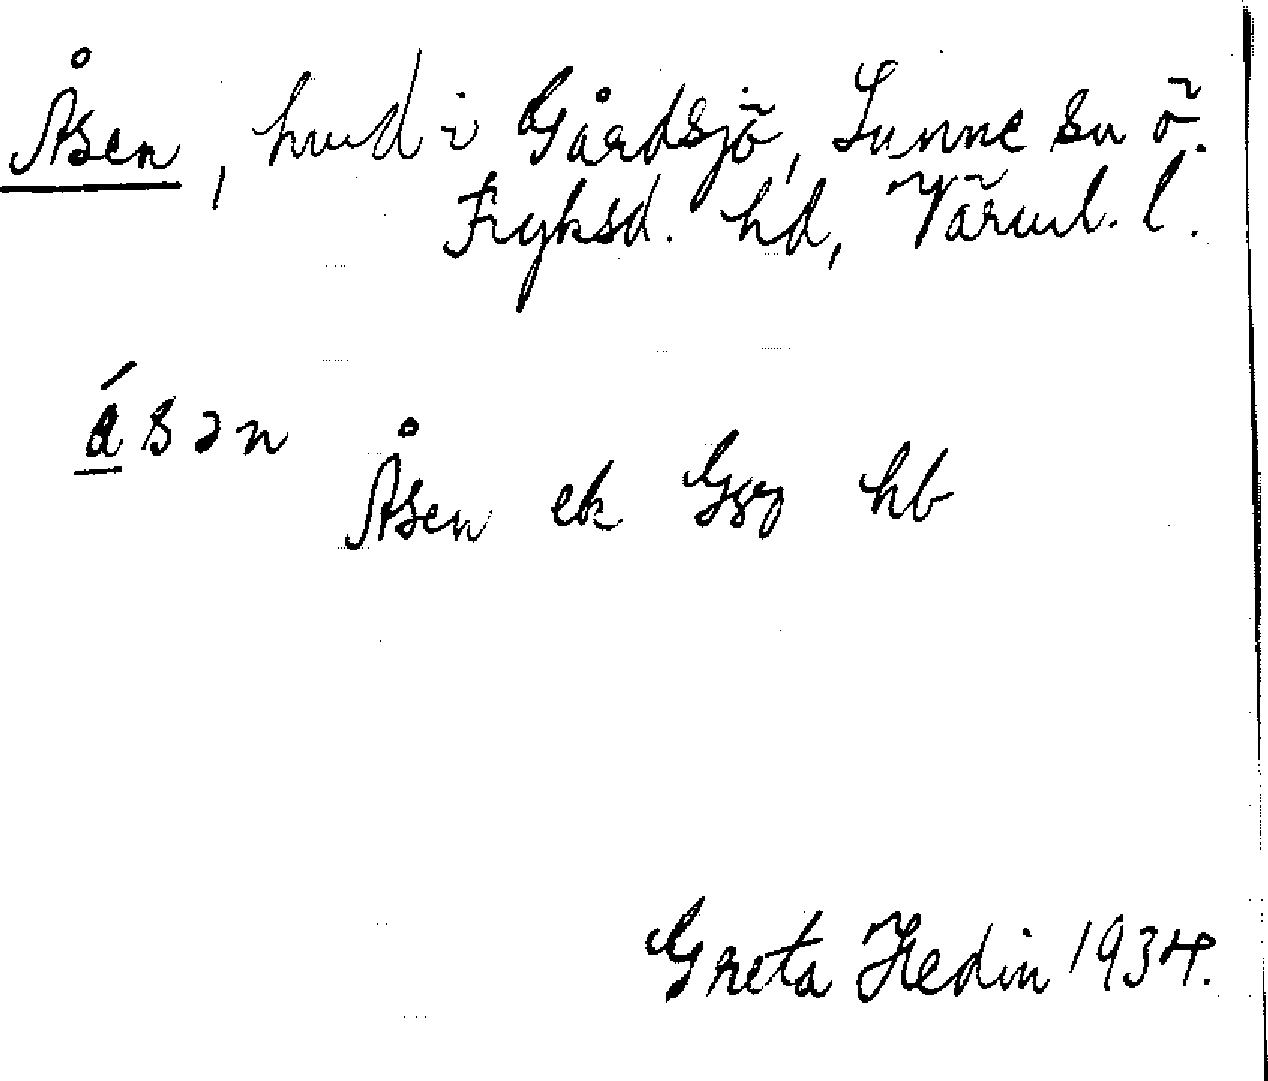 Åsen, hmd i Gårdsjö, Sunne sn ö.
Fryksd. hd, Värml. l.
á̱sən
Åsen ek Gsg hb
Greta Hedin 1934.